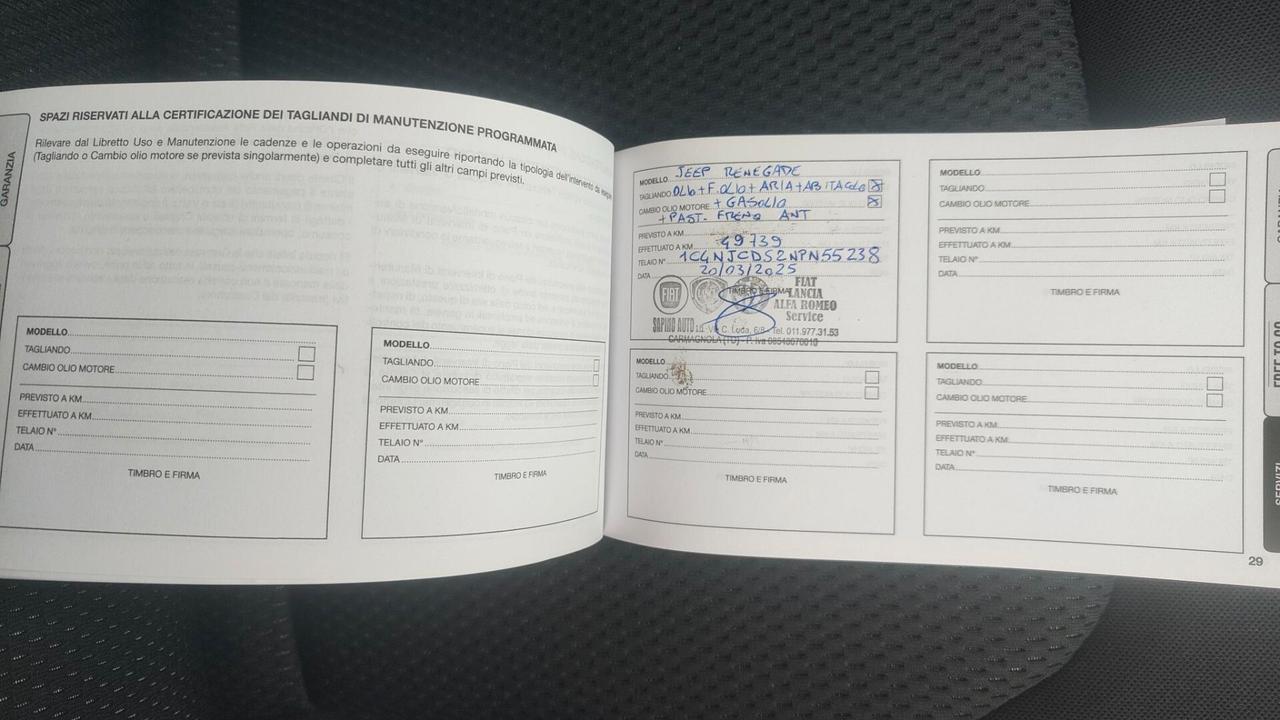 GARANZIA
SPAZI RISERVATI ALLA CERTIFICAZIONE DEI TAGLIANDI DI MANUTENZIONE PROGRAMMATA
Rilevare dal Libretto Uso e Manutenzione le cadenze e le operazioni da eseguire riportando la tipologia dell'intervento da eseguire
(Tagliando o Cambio olio motore se prevista singolarmente) e completare tutti gli altri campi previsti.
MODELLO
TAGLIANDO
CAMBIO OLIO MOTORE
PREVISTO A KM
EFFETTUATO A KM
TELAIO N°
DATA
TIMBRO E FIRMA
MODELLO
TAGLIANDO
CAMBIO OLIO MOTORE
PREVISTO A KM
EFFETTUATO A KM
TELAIO N°
DATA
TIMBRO E FIRMA
MODELLO JEEP RENEGADE
TAGLIANDO OLIO+F.OLIO+ARIA+ABITACOLO X
CAMBIO OLIO MOTORE + GASOLIO X
+ PAST. FRENO ANT
PREVISTO A KM
EFFETTUATO A KM 49739
TELAIO N° 1C4NJCDS2NPN55238
DATA 20/03/2025
TIMBRO E FIRMA
FIAT
FIAT
LANCIA
ALFA ROMEO
Service
SAPINO AUTO Tel. 011.977.31.53
CARMAGNOLA (TO) - P. Iva
MODELLO
TAGLIANDO
CAMBIO OLIO MOTORE
PREVISTO A KM
EFFETTUATO A KM
TELAIO N°
DATA
TIMBRO E FIRMA
MODELLO
TAGLIANDO
CAMBIO OLIO MOTORE
PREVISTO A KM
EFFETTUATO A KM
TELAIO N°
DATA
TIMBRO E FIRMA
MODELLO
TAGLIANDO
CAMBIO OLIO MOTORE
PREVISTO A KM
EFFETTUATO A KM
TELAIO N°
DATA
TIMBRO E FIRMA
SERVIZI
29